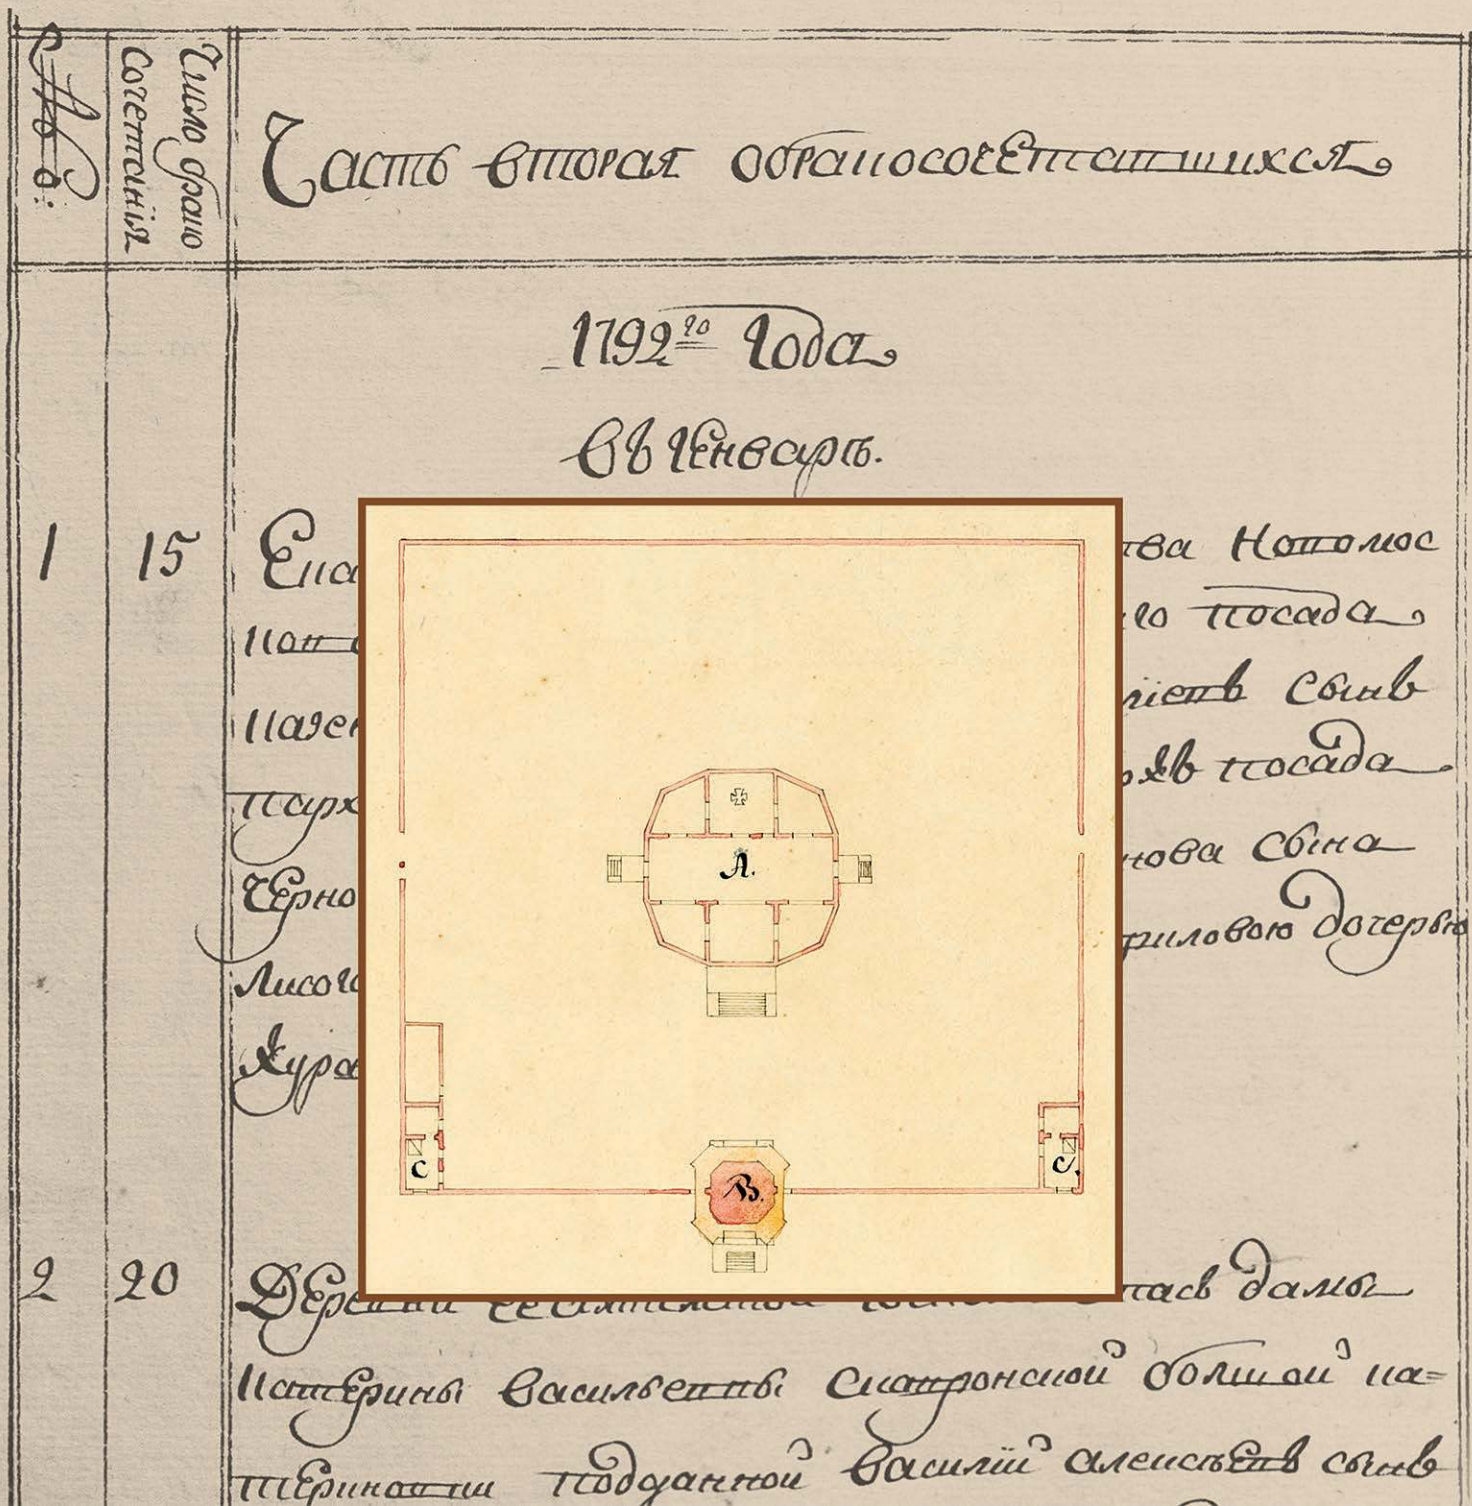 №:
Число брако
сочетанія
Часть вторая обракосочетавшихся
1792го Года
Въ Генварѣ.
1 15 Ека тва Новомос
ков го посада
казен ліевъ сынъ
парх ихъ посада
черно нова сына
Лисог риловою дочерью
Жура
A.
C C.
B.
2 20 Деревни ее сіятельства стасъ дамы
катерины васильевны скавронской болшой ка=
териновки подданной василій алексѣевъ сынъ